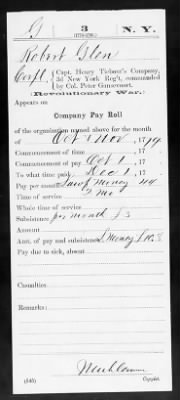 G 3 N.Y.
(178-179.)
Robert Glen
Corpl., Capt. Henry Tiebout's Company,
3d New York Reg't, commanded
by Col. Peter Gansevoort.
(Revolutionary War.)
Appears on
Company Pay Roll
of the organization named above for the month
of Oct & Nov, 1779
Commencement of time, 17
Commencement of pay, Oct 1, 17
To what time paid, Dec 1, 17
Pay per month Lawf Money
Time of service 2 Mo
Whole time of service
Subsistence per month
Amount
Amt. of pay and subsistence
Pay due to sick, absent
Casualties
Remarks:
(545) Copyist.